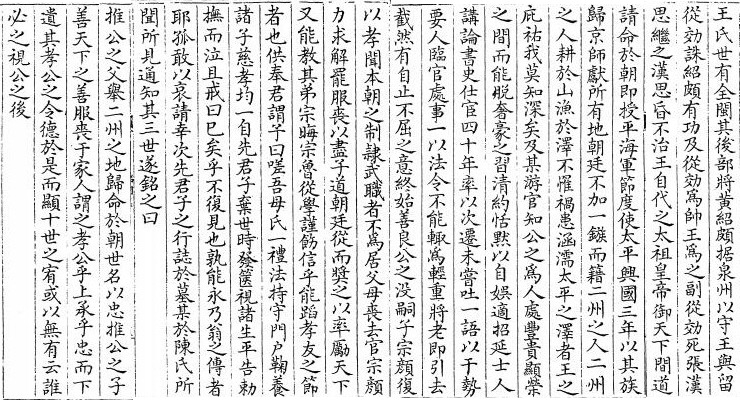 王氏世有全閩其後部將黃紹頗據泉州以守王與留
從効誅紹頗有功及從効為帥王為之副從効死張漢
思繼之漢思昏不治王自代之太祖皇帝御天下間道
請命於朝即授平海軍節度使太平興國三年以其族
歸京師獻所有地朝廷不加一鏃而籍二州之人二州
之人耕於山漁於澤不罹禍患涵濡太平之澤者王之
庇祐我莫知深矣及某游官知公之為人處豐貴顯榮
之間而能脫奢豪之習清約恬默以自娛適招延士人
講論書史仕官四十年率以次遷未嘗吐一語以干勢
要人臨官處事一以法令不能輒為輕重將老即引去
截然有自止不屈之意終始善良公之没嗣子宗顏復
以孝聞本朝之制隷武職者不為居父母喪去官宗顏
力求解罷服喪以盡子道朝廷從而奬之以率勵天下
又能教其弟宗晦宗魯從學謹飭信乎能蹈孝友之節
者也供奉君謂予曰嗟吾母氏一禮法持守門戶鞠養
諸子慈孝均一自先君子棄世時發篋視諸生平告勅
撫而泣且戒曰巳矣乎不復見也孰能永乃翁之傳者
耶孤敢以哀請幸次先君子之行誌於墓某於陳氏所
聞所見通知其三世遂銘之曰
推公之父舉二州之地歸命於朝世名以忠推公之子
善天下之善服喪于家人謂之孝公乎上承乎忠而下
遺其孝公之令德於是而顯十世之宥或以無有云誰
必之視公之後